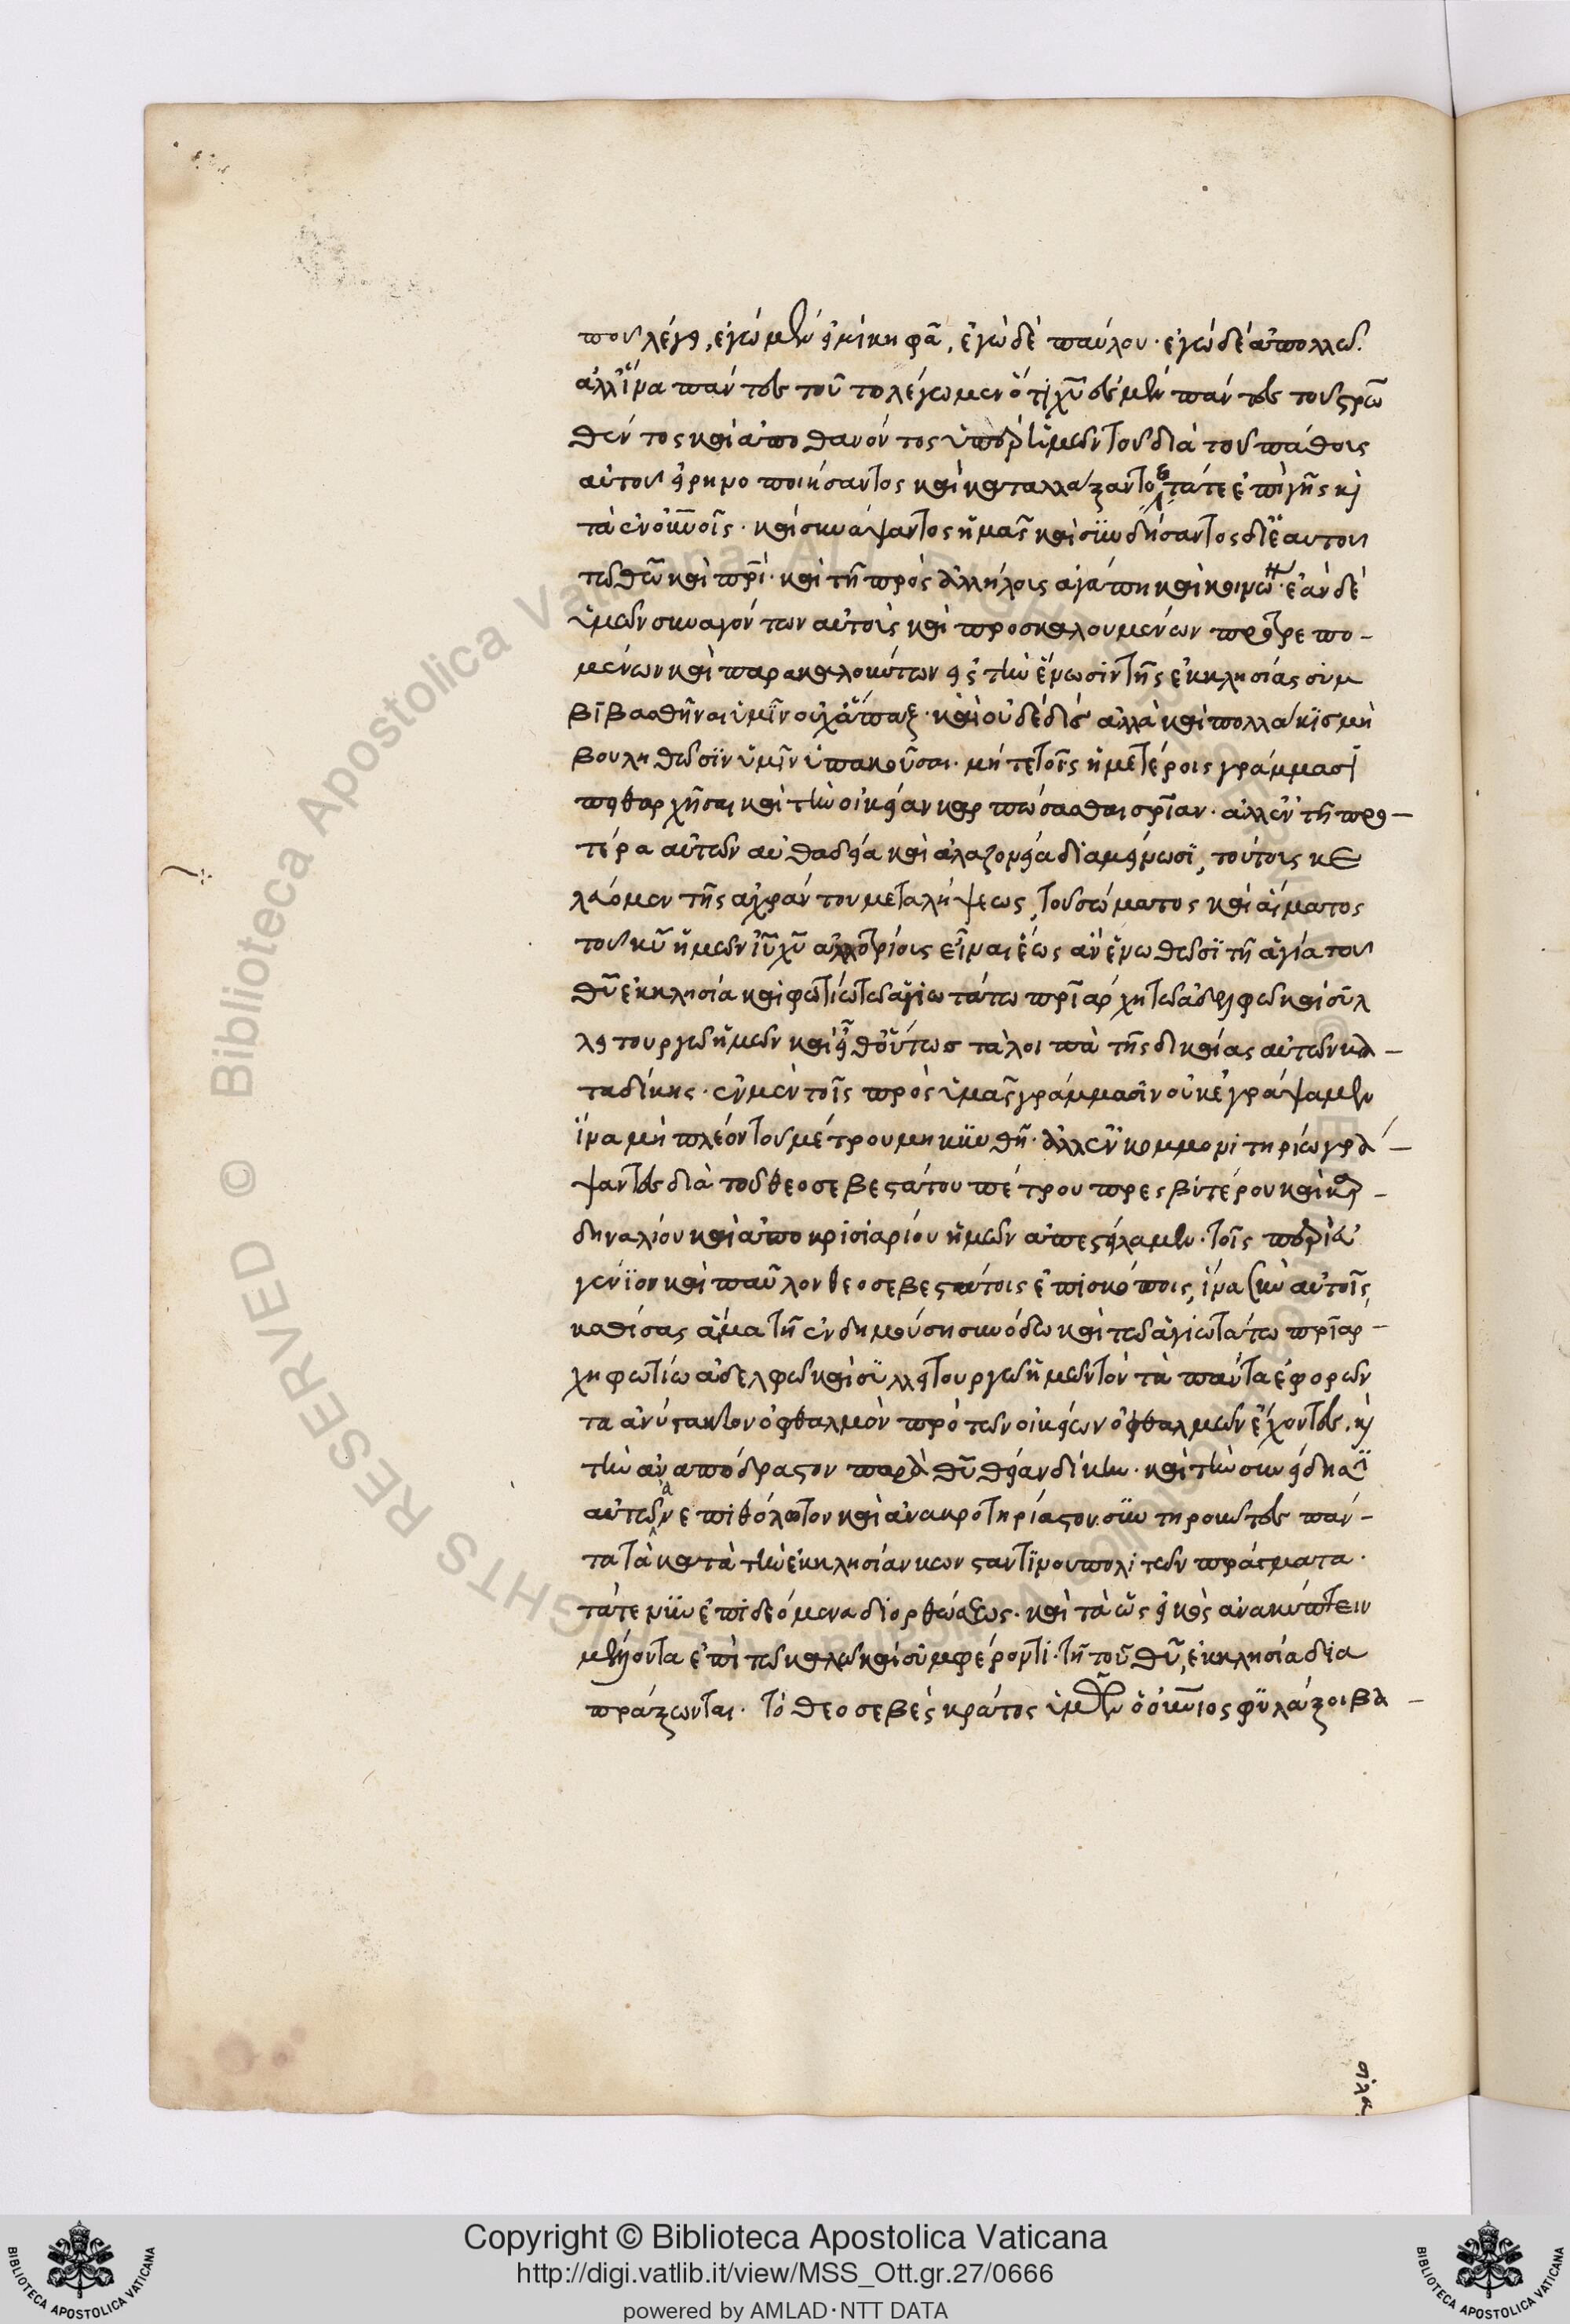 που λέγει, ἐγὼ μὲν εἰμὶ κηφᾶ, ἐγὼ δὲ παύλου· ἐγὼ δὲ ἀπολλώ.
ἀλλ' ἵνα πάντες τοῦτο λέγωμεν ὅτι χῦ ἐσμὲν πάντες τοῦ σρω
θέντος καὶ ἀποθανόντος ὑπὲρ ἡμῶν τοῦ διὰ τοῦ πάθους
αὐτοῦ εἰρηνοποιήσαντος καὶ καταλλάξαντος τά τε ἐπὶ γῆς κὶ
τὰ ἐν οὐνοῖς· καὶ συνάψαντος ἡμᾶς καὶ συνδήσαντος δι' ἑαυτοῦ
τῷ θῶ καὶ πρὶ· καὶ τῇ πρὸς ἀλλήλους ἀγάπη καὶ κοινων· ἐὰν δὲ
ὑμῶν συναγόντων αὐτοὺς καὶ προσκαλουμένων προτρεπο-
μένων καὶ παρακαλούντων εἰς τὴν ἕνωσιν τῆς ἐκκλησίας συμ
βιβασθῆναι ὑμῖν οὐχ ἅπαξ· καὶ οὐδὲ δὶς ἀλλὰ καὶ πολλάκις μὴ
βουληθῶσιν ὑμῖν ὑπακοῦσαι· μήτε τοῖς ἡμετέροις γράμμασι
πειθαρχῆσαι καὶ τὴν οἰκείαν καρπώσασθαι σρίαν· ἀλλ' ἐν τῇ προ-
τέρα αὐτῶν αὐθαδεία καὶ ἀλαζονεία διαμείνωσι, τούτους κε
λεύομεν τῆς ἀχράντου μεταλήψεως, τοῦ σώματος καὶ αἵματος
τοῦ κῦ ἡμῶν ἰῦ χῦ ἀλλοτρίους εἶναι ἕως ἂν ἑνωθῶσι τῇ ἁγία τοῦ
θῦ ἐκκλησία καὶ φωτίω τῷ ἁγιωτάτω πριάρχη τῷ ἀδελφῷ καὶ συλ
λειτουργῷ ἡμῶν καὶ εἶθ' οὕτως τὰ λοιπὰ τῆς δικαίας αὐτῶν κα-
ταδίκης· ἐν μὲν τοῖς πρὸς ὑμᾶς γράμμασιν οὐκ ἐγράψαμεν
ἵνα μὴ πλέον τοῦ μέτρου μηκυνθῇ· ἀλλ' ἐν κομμονιτηρίω γρά-
ψαντες διὰ τοῦ θεοσεβεστάτου πέτρου πρεσβυτέρου καὶ καρ-
δηναλίου καὶ ἀποκρισιαρίου ἡμῶν ἀπεστείλαμεν· τοῖς περὶ εὐ
γένιον καὶ παῦλον θεοσεβεστάτοις ἐπισκόποις, ἵνα σὺν αὐτοῖς
καθίσας ἅμα τῇ ἐνδημούση συνόδω καὶ τῷ ἁγιωτάτω πριάρ-
χη φωτίω ἀδελφῷ καὶ συλλειτουργῷ ἡμῶν τὸν τὰ πάντα ἐφορῶν
τα ἀνύστακτον ὀφθαλμὸν πρὸ τῶν οἰκείων ὀφθαλμῶν ἔχοντες, κὶ
τὴν ἀναπόδραστον παρὰ θῦ θείαν δίκην· καὶ τὴν συνείδησι
αὐτῶν ἀνεπιθόλωτον καὶ ἀνακροτηρίαστον συντηροῦντες πάν-
τα τὰ κατὰ τὴν ἐκκλησίαν κωνσταντινουπολιτῶν πράγματα·
τά τε νῦν ἐπιδεόμενα διορθώσεως· καὶ τὰ ὡς εἰκὸς ἀνακύπτειν
μέλλοντα ἐπὶ τῷ καλῷ καὶ συμφέροντι· τῇ τοῦ θῦ ἐκκλησία δια
πράξωνται· τὸ θεοσεβὲς κράτος ὑμῶν ὁ οὐνιος φυλάξοι βα-